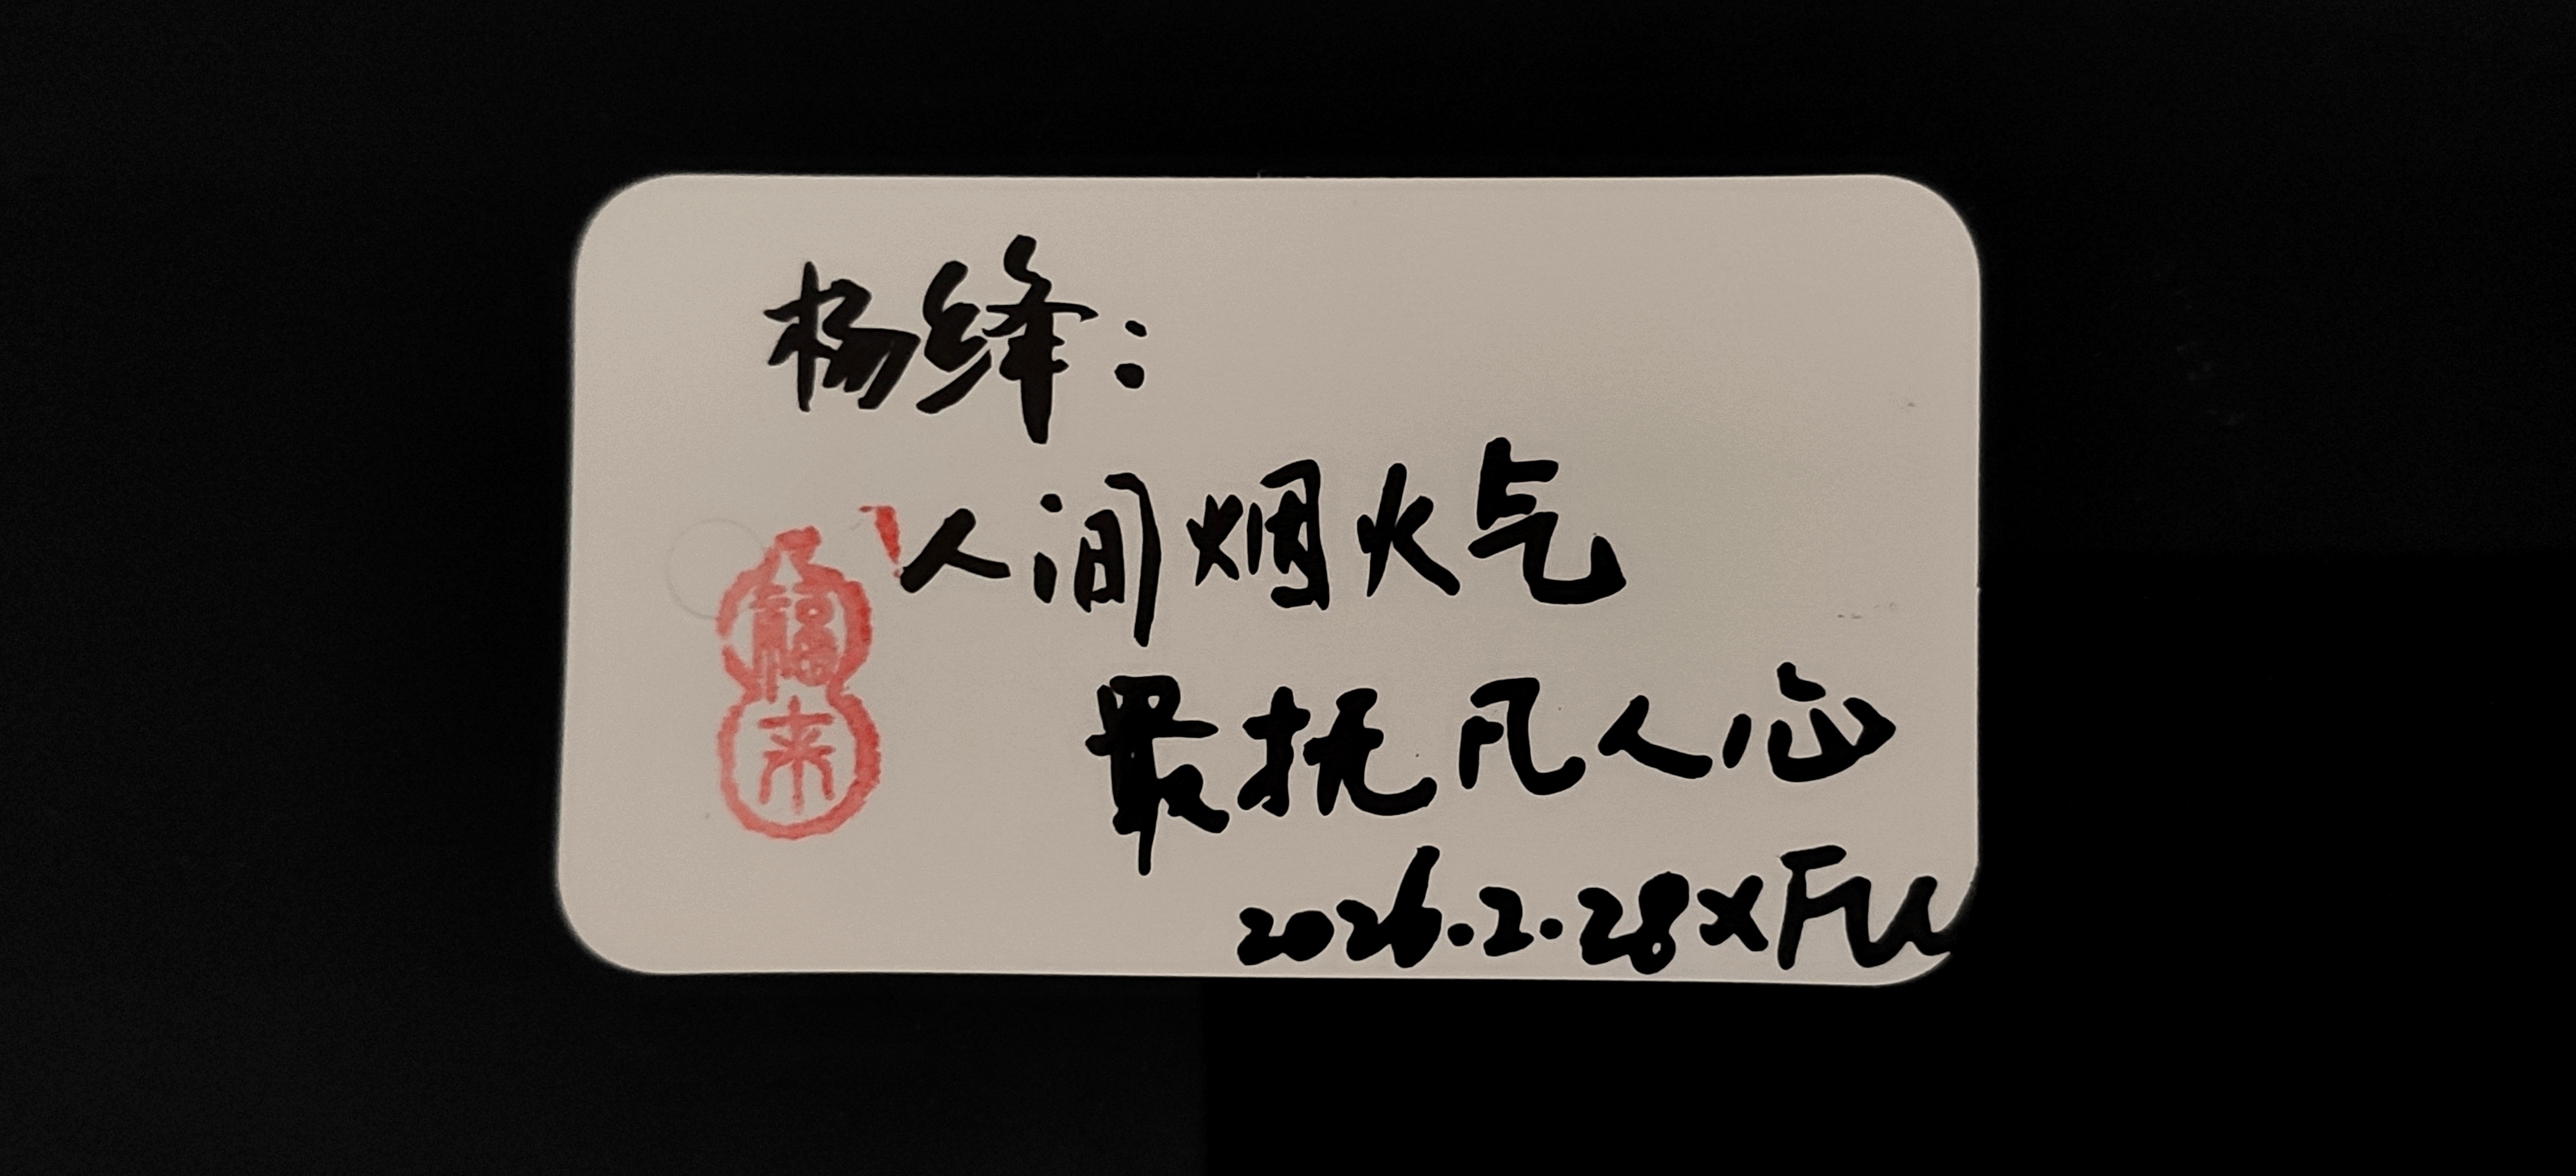 杨绛：
人间烟火气
最抚凡人心
2026.2.28 XFu
福
来